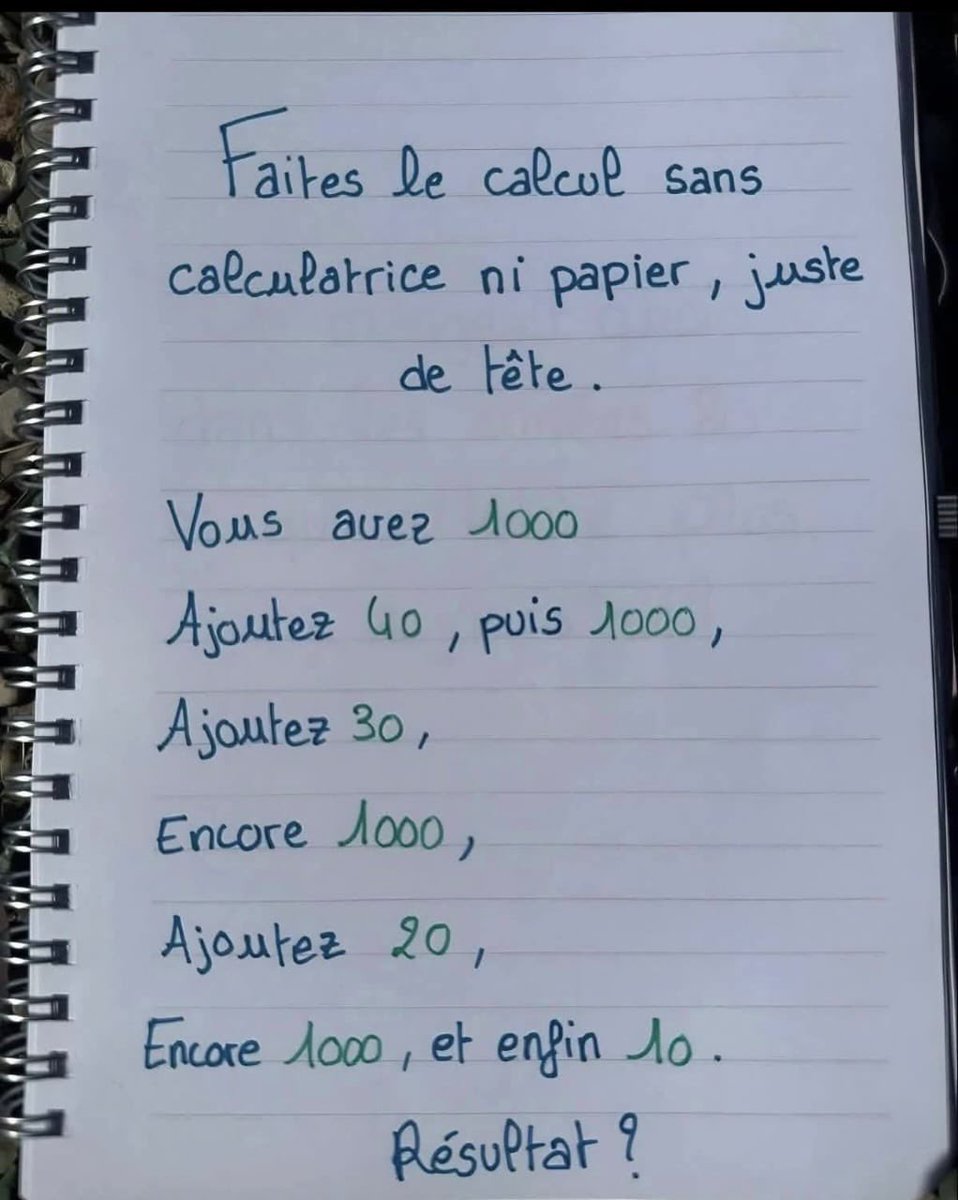 Faites le calcul sans
calculatrice ni papier, juste
de tête.
Vous avez 1000
Ajoutez 40, puis 1000,
Ajoutez 30,
Encore 1000,
Ajoutez 20,
Encore 1000, et enfin 10.
Résultat ?